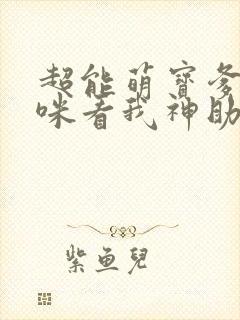 超能萌寶爹
咪看我神助
紫魚兒